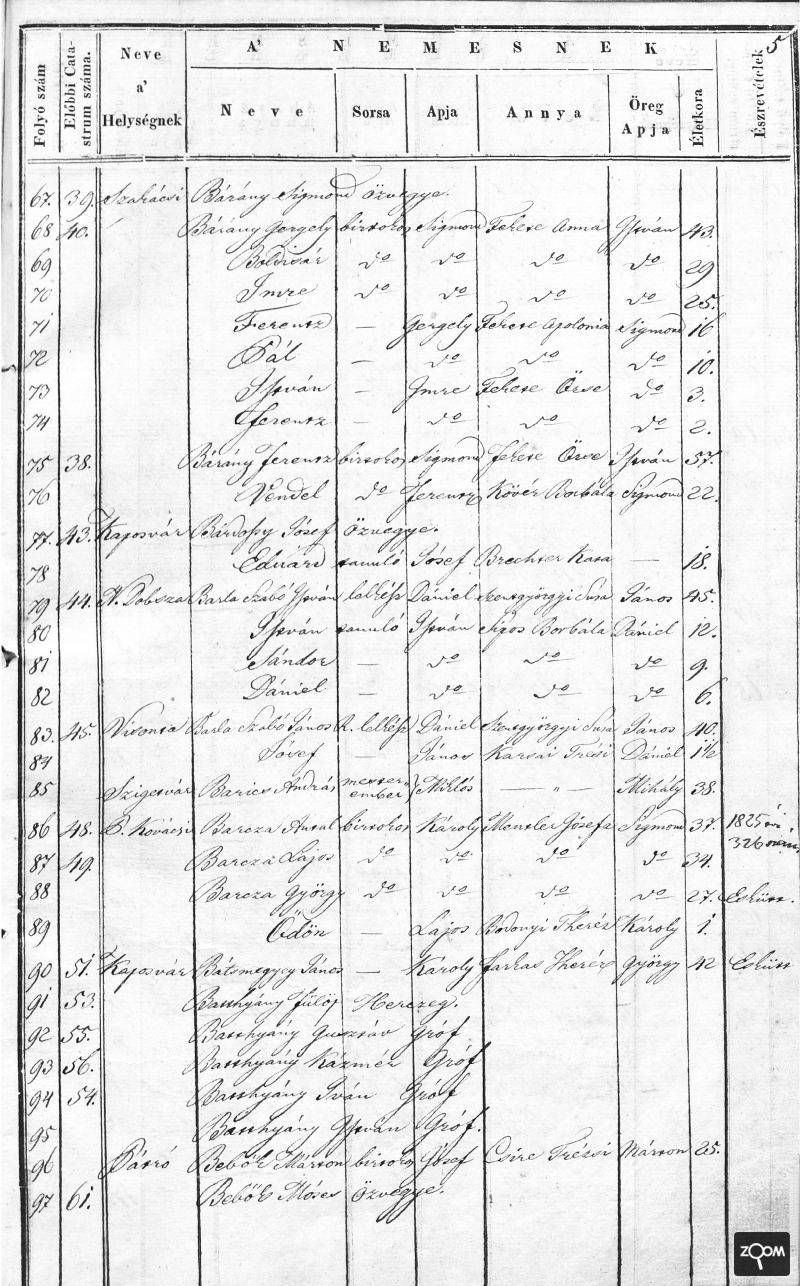 5
Folyó szám | Előbbi Catastrum száma. | Neve a' Helységnek | A' NEMESNEK | Észrevételek
Neve | Sorsa | Apja | Annya | Öreg Apja | Életkora
67. 39. Szakácsi Bárány Sigmond özvegye.
68 40. Bárány Gergely birtokos Sigmond Fekete Anna István 43.
69 Boldisár do do do do 29
70 Imre do do do do 25.
71 Ferentz — Gergely Fekete Apolonia Sigmond 16
72 Pál — do do do 10.
73 István — Imre Fekete Örse do 3.
74 Ferentz — do do do 2.
75 38. Bárány Ferentz birtokos Sigmond Fekete Örse István 57.
76 Vendel do Ferentz Kövér Borbála Sigmond 22.
77. 43. Kaposvár Bárdossy Jósef özvegye.
78 Eduárd tanuló Jósef Brechter Kata — 18.
79 44. N. Dobsza Barla Szabó István lelkész Dániel Szentgyörgyi Susa János 45.
80 István tanuló István Sigos Borbála Dániel 12.
81 Sándor — do do do 9.
82 Dániel — do do do 6.
83. 45. Visonta Barla Szabó János R. lelkész Dániel Szentgyörgyi Susa János 40.
84 Jósef — János Karsai Trési Dániel 1½
85 Szigetvár Barics András mesterember Miklós — " — Mihály 38.
86 48. B. Kovácsi Barcza Antal birtokos Károly Mentler Jósefa Sigmond 37. 1825 évi
326
87 49. Barcza Lajos do do do do 34.
88 Barcza György do do do do 27. Eskütt.
89 Ödön — Lajos Bodonyi Theréz Károly 1.
90 51. Kaposvár Bátsmegyey János — Károly Farkas Theréz György 42 Eskütt
91 53. Batthyány Fülöp Herczeg.
92 55. Batthyány Gusztáv Gróf.
93 56. Batthyány Kázmér Gróf
94 54. Batthyány Iván Gróf
95 Batthyány István Gróf.
96 Pátró Bebők Márton birtokos Jósef Csire Trézsi Márton 25.
97 61. Bebők Móses özvegye.
ZOOM